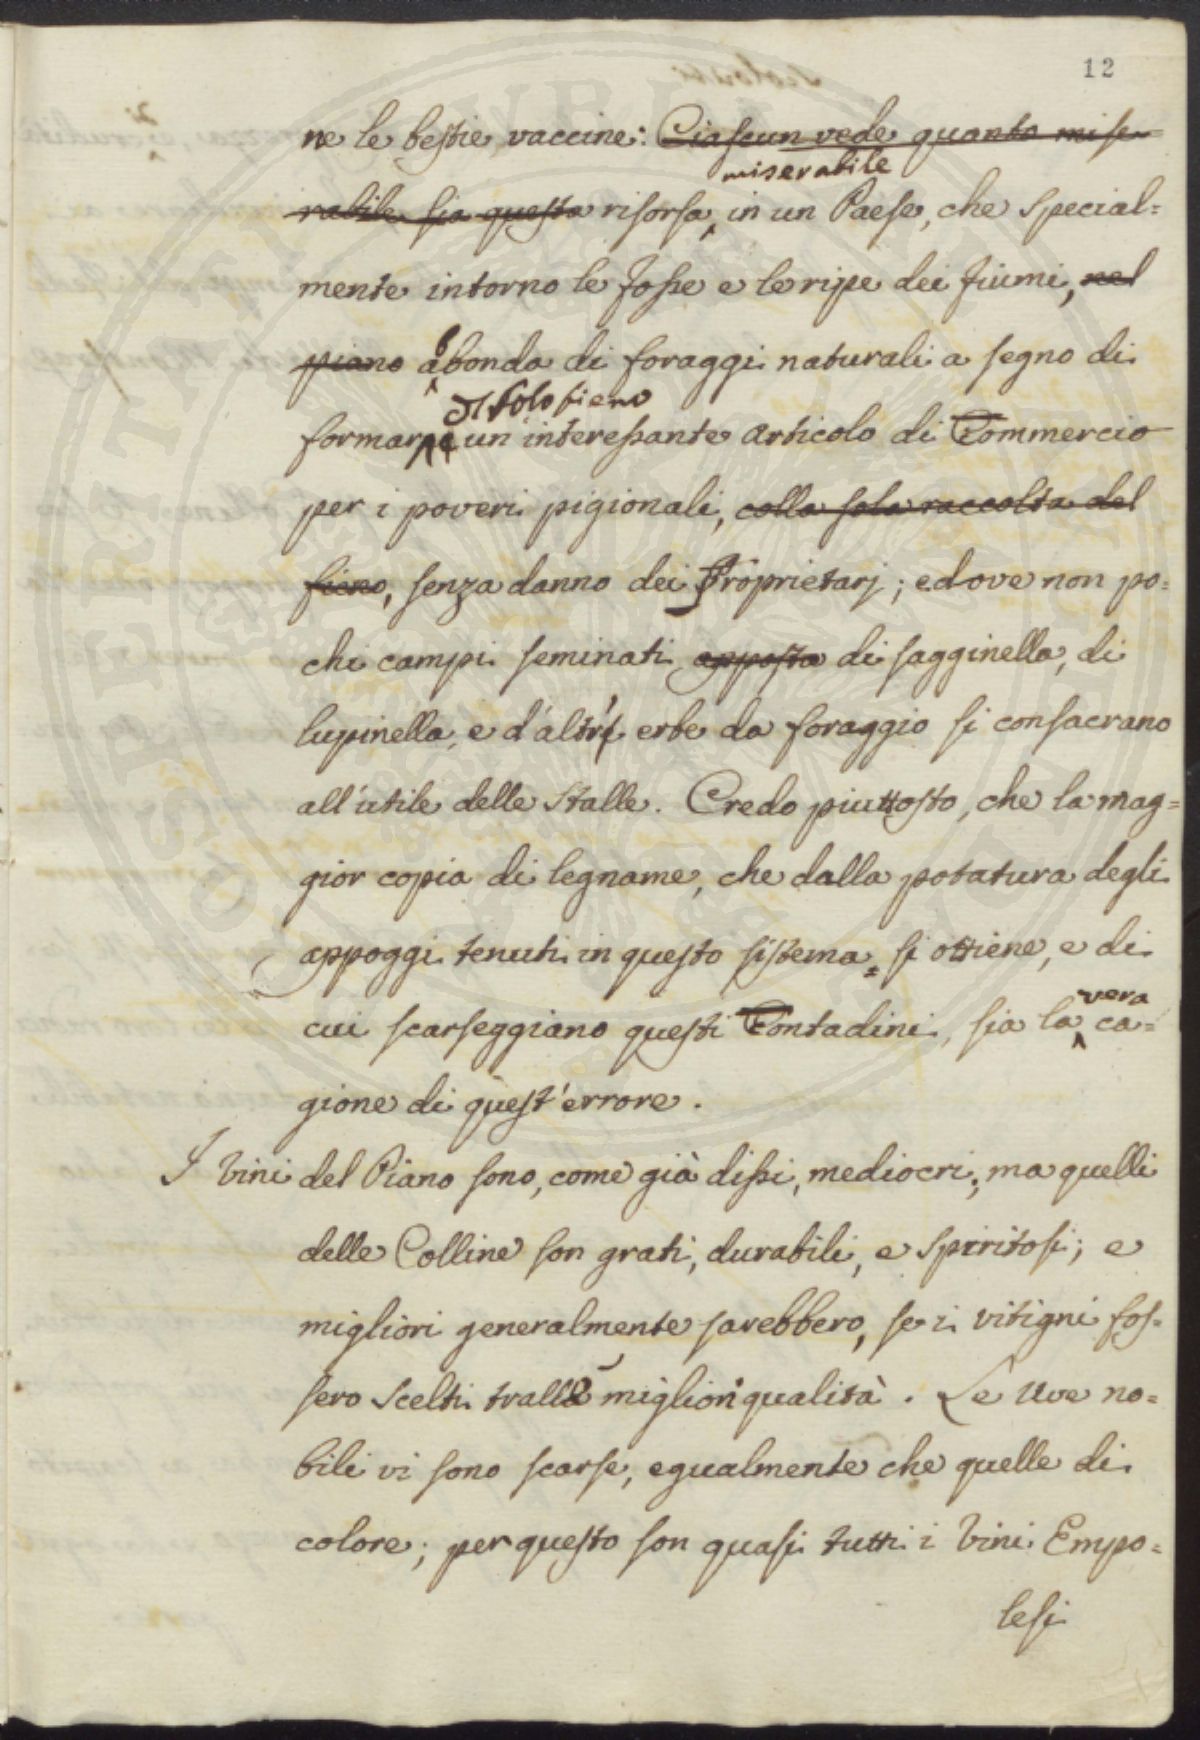 12
ne le bestie vaccine: Ciascun vede quanto mise=
miserabile
rabile sia questa risorsa, in un Paese, che special=
mente intorno le fosse e le ripe dei fiumi, nel
piano abbonda di foraggi naturali a segno di
Il solo fieno
formarne un interessante articolo di Commercio
per i poveri pigionali, colla sola raccolta del
fieno, senza danno dei Proprietarj; e dove non po=
chi campi seminati apposta di sagginella, di
lupinella, e d'altre erbe da foraggio si consacrano
all'utile delle Stalle. Credo piuttosto, che la mag=
gior copia di legname, che dalla potatura degli
appoggi tenuti in questo sistema si ottiene, e di
vera
cui scarseggiano questi Contadini, sia la ca=
gione di quest'errore.
I Vini del Piano sono, come già dissi, mediocri; ma quelli
delle Colline son grati, durabili, e spiritosi; e
migliori generalmente sarebbero, se i vitigni fos=
sero scelti tralle migliori qualità. Le Uve no=
bili vi sono scarse, egualmente che quelle di
colore; per questo son quasi tutti i Vini Empo=
lesi